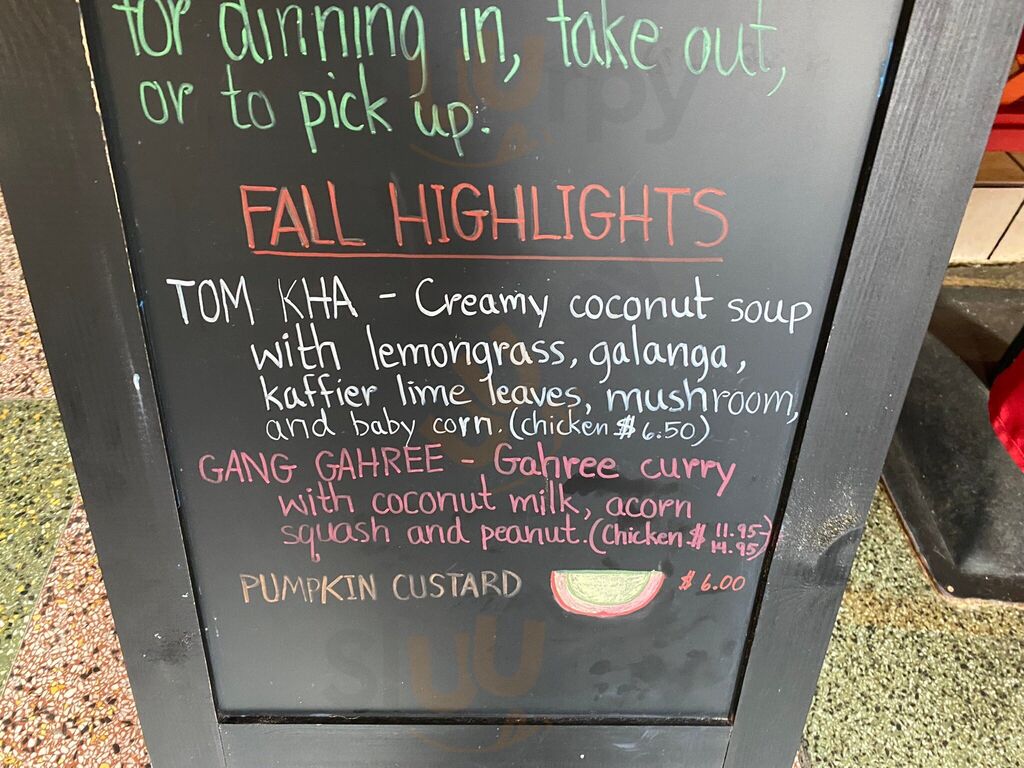 for dinning in, take out,
or to pick up.
FALL HIGHLIGHTS
TOM KHA - Creamy coconut soup
with lemongrass, galanga,
kaffier lime leaves, mushroom,
and baby corn. (chicken $6.50)
GANG GAHREE - Gahree curry
with coconut milk, acorn
squash and peanut. (Chicken $ 11.95-
14.95)
PUMPKIN CUSTARD $6.00
sluurpy
sluu